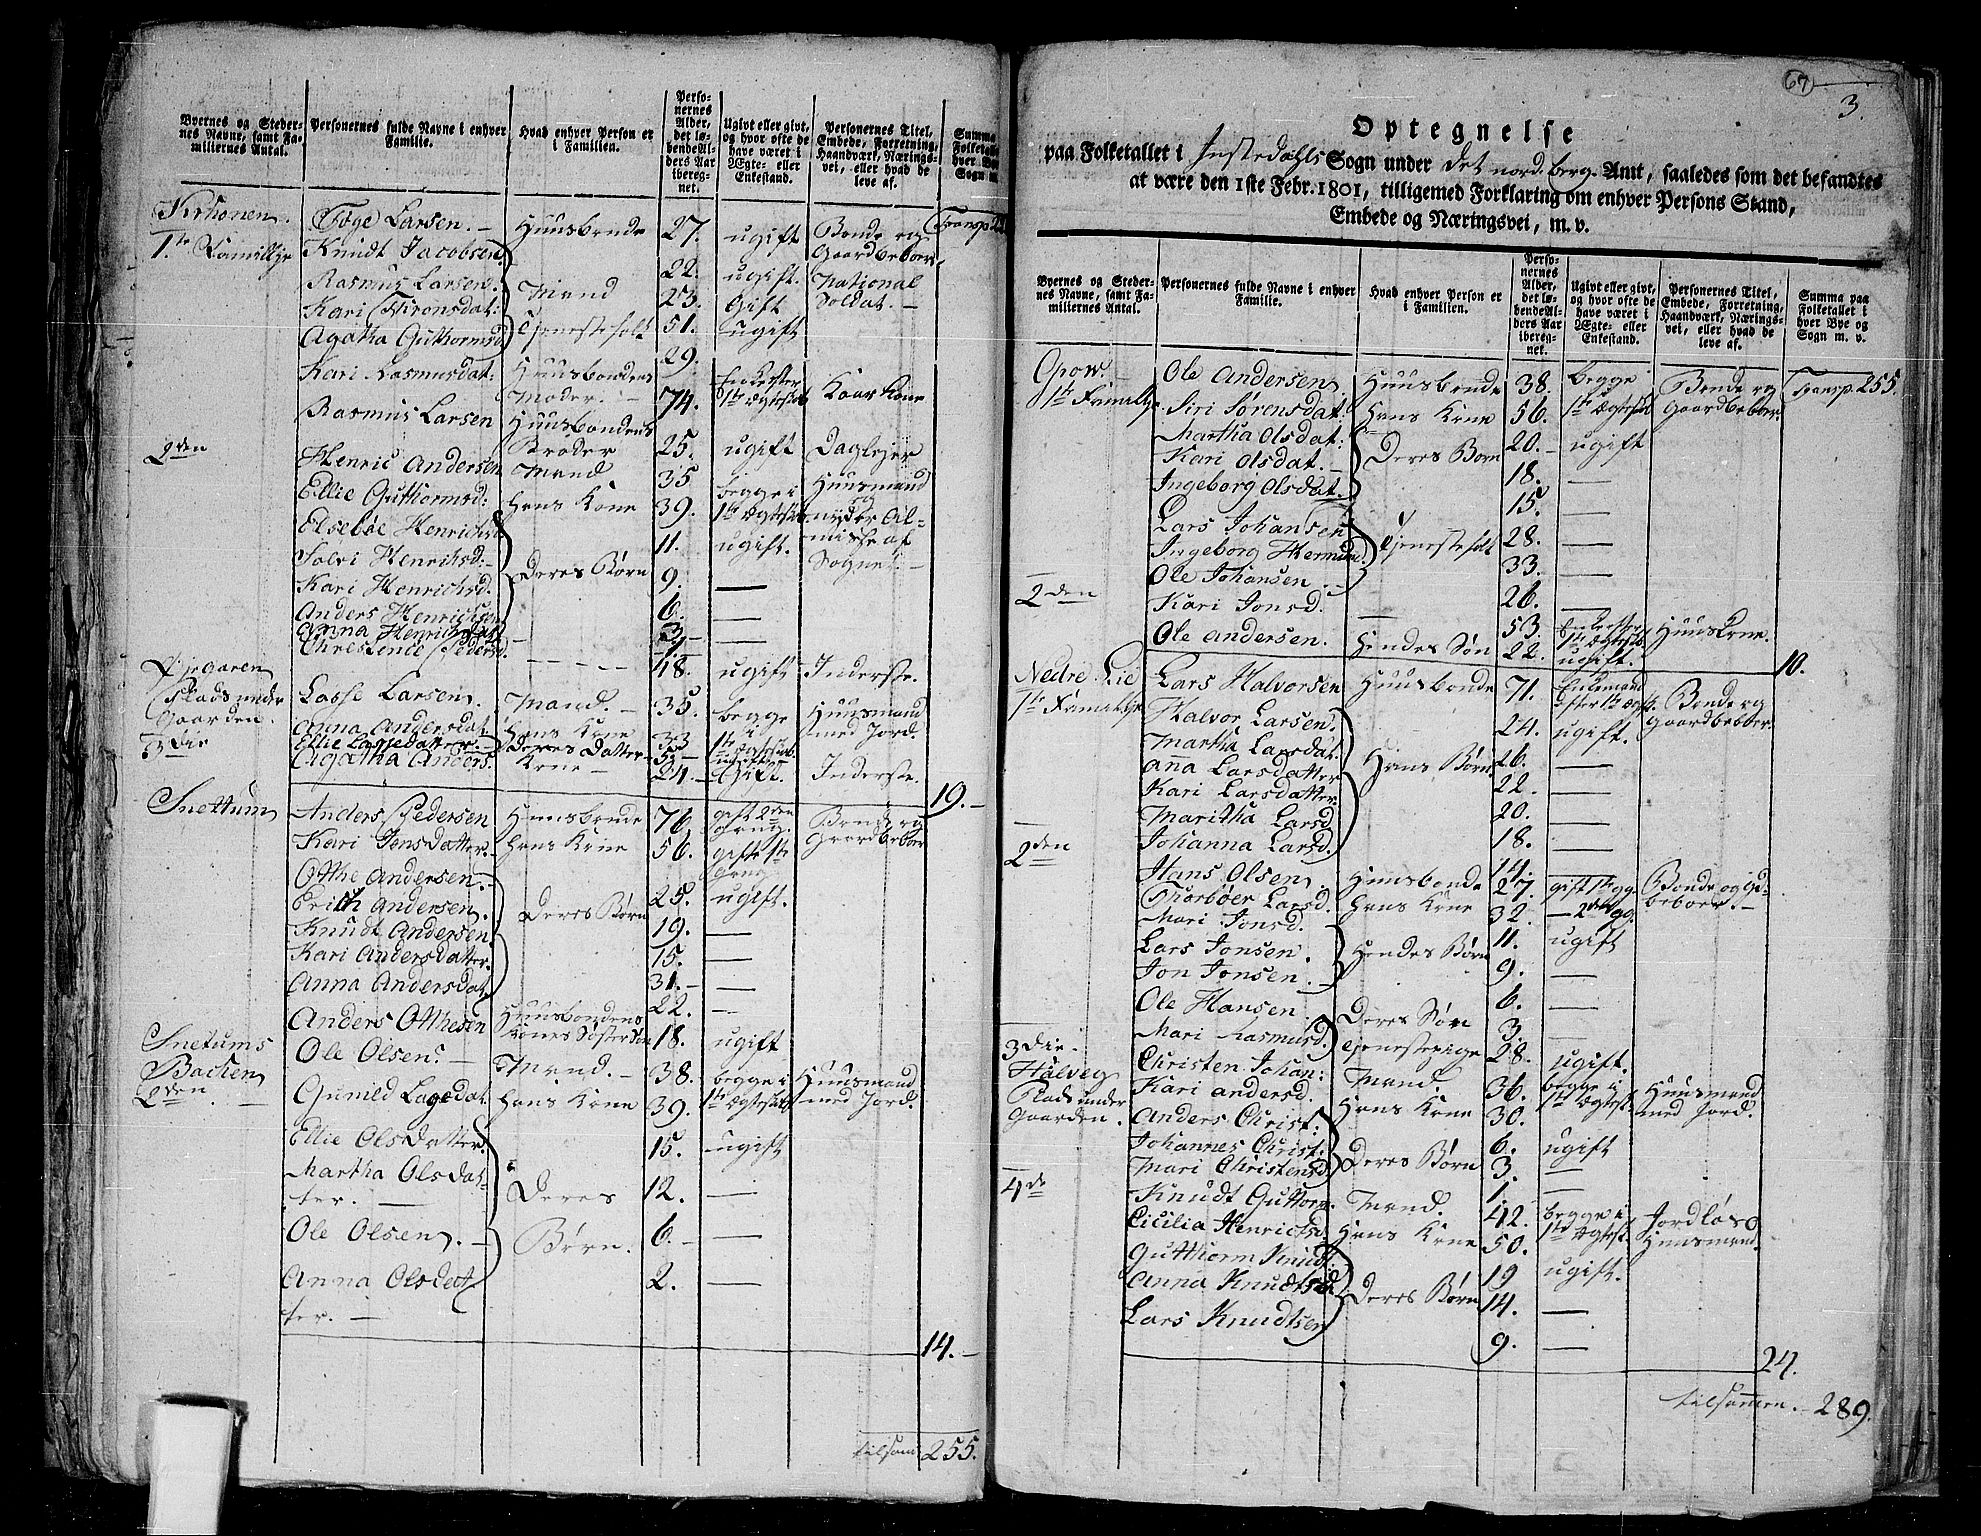 Byernes og Steder-
nes Navne, samt Fa-
miliernes Antal.
Personernes fulde Navne i enhver
Familie.
Hvad enhver Person er
i Familien.
Perso-
nernes
Alder,
det lø-
bende Al-
ders Aar
ibereg-
net.
Ugivt eller givt,
og hvor ofte de
have været i
Ægte- eller
Enkestand.
Personernes Titel,
Embede, Forretning,
Haandværk, Nærings-
vei, eller hvad de
leve af.
Summa
Folketallet
hver Bye
Sogn m.
Tøge Larsen. Huusbonde 27. ugift Bonde og Gaardbeboer. Transp.
1te Familije Knudt Jacobsen 22. ugift. National Soldat.
Rasmus Larsen Mand 23. Gift
Kari Tironsdat: Tjenestefolk 51. ugift
Agatha Guthormsd 29.
Kari Rasmusdat: Huusbondens Moder. 74. Enke efter 1te Ægteskab Kaarkone
Rasmus Larsen Huusbondens Broder 25. ugift Daglejer
2den Henric Andersen Mand 35 begge i 1te Ægteskab Huusmand og nyder Al-
misse af Sognet.
Ellie Guthormsd: hans Kone 39.
Elsebøe Henrichs 11. ugift.
Salvi Henrichsd: Deres Børn 9. —
Kari Henrichsd. 6. —
Anders Henrichsen 3. —
Anna Henrichsdat 1.
Christence Pedersd. 48. ugift Inderste.
Plads under
Gaarden.
Lasse Larsen Mand. 35. begge i 1te Ægteskab Huusmand med Jord.
Anna Andersdat hans Kone 33
Ellie Lassedatter. Deres Datter 3. ugift
3die Agatha Anders. Kone 24. Gift. Inderste.
19.
Snettum Anders Pedersen Huusbonde 76. gift 2den Gang. Bonde og Gaardbeboer
Kari Jonsdatter. hans Kone 56. gift 1te Gang
Otthe Andersen. 25. ugift.
Erich Andersen. Deres Børn 19. —
Knudt Andersen. 15. —
Kari Andersdatter. 31. —
Anna Andersdat. 22. —
Anders Otthesen Huusbondens Kones Søster Søn 18. ugift
Snetums
Bachen
2den
Ole Olsen. Mand. 38. begge i 1te Ægteskab Huusmand med Jord.
Gunild Lagedat hans Kone 39.
Ellie Olsdatter. 15. ugift
Martha Olsdat-
ter. Deres 12. —
Ole Olsen. Børn. 6. —
Anna Olsdat
ter. 2. —
14.
tilsam 255.
67
3.
Optegnelse
paa Folketallet i Justedahls Sogn under det nord. berg. Amt, saaledes som det befandtes
at være den 1ste Febr. 1801, tilligemed Forklaring om enhver Persons Stand,
Embede og Næringsvei, m. v.
Byernes og Steder-
nes Navne, samt Fa-
miliernes Antal.
Personernes fulde Navne i enhver
Familie.
Hvad enhver Person er
i Familien.
Perso-
nernes
Alder,
det lø-
bende Al-
ders Aar
ibereg-
net.
Ugivt eller givt,
og hvor ofte de
have været i
Ægte- eller
Enkestand.
Personernes Titel,
Embede, Forretning,
Haandværk, Nærings-
vei, eller hvad de
leve af.
Summa paa
Folketallet i
hver Bye og
Sogn m. v.
Ole Andersen. Huusbonde 38. begge 1te Ægteskab Bonde og Gaardbeboer Transp. 255.
Siri Sørensdat. Hans Kone 56.
Martha Olsdat: 20. ugift
Kari Olsdat. Deres Børn 18. —
Ingeborg Olsdat. 15. —
Lars Johansen 28. —
Ingeborg Hermund. Tjenestefolk 33. —
Ole Johansen 26. —
2den Kari Jonsd. — 53. Enke efter 1te Ægteskab Huuskone.
Ole Andersen. Hendes Søn 22. ugift.
10.
Nedre Lie Lars Halvorsen Huusbonde 71. Enkemand efter 1te Ægt. Bonde og Gaardbeboer.
Halvor Larsen. 24. ugift.
Martha Larsdat. 26. —
Anna Larsdatter Hans Børn 22. —
Kari Larsdatter. 20. —
Maritha Larsd 18. —
Johanna Larsd. 14.
2den Hans Olsen Huusbonde 27. gift 1te gg Bonde og Gd-
beboer.
Thorbøer Larsd. Hans Kone 32. — 2den gg
Mari Jonsd. 11. ugift
Lars Jonsen. Hendes Børn 9. —
Jon Jonsen. 6. —
Ole Hansen. Deres Søn 3. —
Mari Rasmusd. Tjenestepige 28. ugift.
3die.
Halveg
Plads under
Gaarden.
Christen Johan: Mand. 36. begge i 1te Ægtesk. Huusmand med Jord.
Kari Andersd. Hans Kone 30.
Anders Christ: 6. ugift
Johannes Christ: Deres Børn 3. —
Mari Christensd. 1. —
4de Knudt Guttorm. Mand. 42. begge i 1te Ægtesk. Jordløs Huusmand.
Cicilia Henrichsd. Hans Kone 50.
Gutthorm Knudt. 19 ugift.
Anna Knudtsd. Deres Børn 14. —
Lars Knudtsen 9. —
24.
tilsammen. 289.